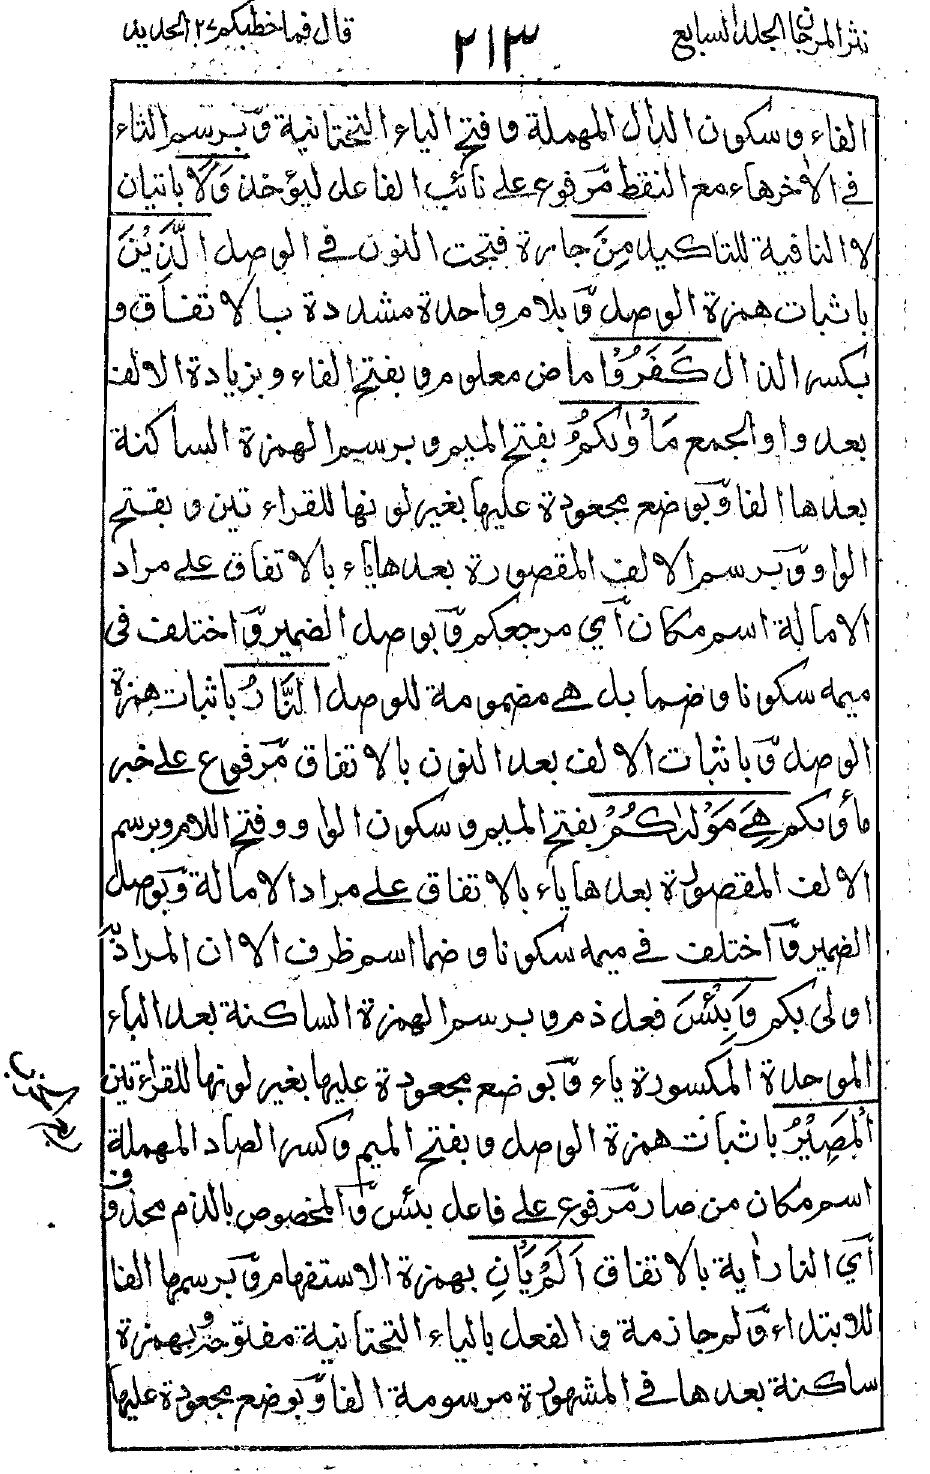 نثر المرجان الجلد السابع
٢١٣
قال فما خطبكم ٢٧ الحديد
الفاء وسكون الدال المهملة وفتح الياء التحتانية وّبرسم التاء
في الاٰخرهاء مع النقط مرّفوع على نائب الفاعل ليؤخذ وَلَا باتيان
لا النافية للتاكيد مِنَ جارة فتحت النون في الوصل الَّذِيْنَ
باثبات همزة الوصل وّبلام واحدة مشددة بالاتفاق و
بكسر الذال كَفَرُوْا ماض معلوم وبفتح الفاء وبزيادة الالف
بعد واو الجمع مَأْوٰىكُمُ بفتح الميم وبرسم الهمزة الساكنة
بعدها الفا وّبوضع مجعودة عليها بغير لونها للقراءتين وبفتح
الواو وّبرسم الالف المقصورة بعدها ياء بالاتفاق على مراد
الامالة اسم مكان اَي مرجعكم وّبوصل الضمير وّاختلف في
ميمه سكونا وضما بل هي مضمومة للوصل النَّارُ باثبات همزة
الوصل وّباثبات الالف بعد النون بالاتفاق مرّفوع على خبر
مأوىكم هِيَ مَوْلٰىكُمْ بفتح الميم وسكون الواو وفتح اللام وبرسم
الالف المقصورة بعدها ياء بالاتفاق على مراد الامالة وّبوصل
الضمير وّاختلف في ميمه سكونا وضما اسم ظرف الا ان المراد
اولى بكم وَبِئْسَ فعل ذم وبرسم الهمزة الساكنة بعد الباء
الموحدة المكسورة ياء وّبوضع مجعودة عليها بغير لونها للقراءتين
الْمَصِيْرُ باثبات همزة الوصل وبفتح الميم وكسر الصاد المهملة
اسم مكان من صار مرّفوع على فاعل بئس وّالمخصوص بالذم محذوف
اَي النار اٰية بالاتفاق اَلَمْ يَأْنِ بهمزة الاستفهام وّبرسمها الفا
للابتداء وّلم جازمة و الفعل بالياء التحتانية مفتوحة وبهمزة
ساكنة بعدها في المشهورة مرسومة الفا وّبوضع مجعودة عليها